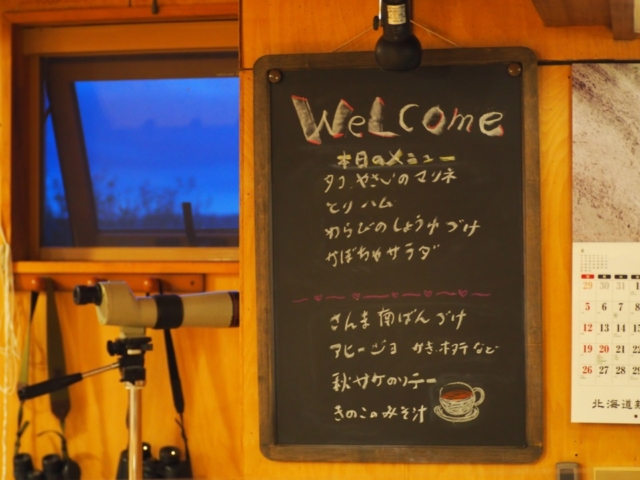 WeLcome
本日のメニュー
タコ、やさいのマリネ
とりハム
わらびのしょうゆづけ
かぼちゃサラダ
さんま南ばんづけ
アヒージョ かき・ホタテなど
秋サケのソテー
きのこのみそ汁
29 30 31 1
5 6 7 8
12 13 14 15
19 20 21 22
26 27 28 29
北海道新